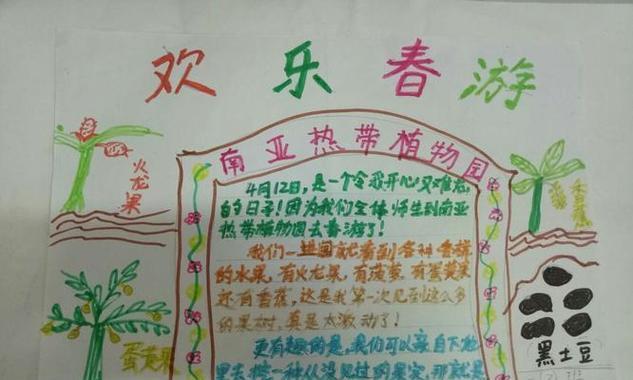 欢乐春游
南亚热带植物园
4月12日，是一个令我开心又难忘
的日子！因为我们全体师生到南亚
热带植物园去春游了！
我们一进园就看到各种各样
的水果，有火龙果，有菠萝，有蛋黄果
还有香蕉，这是我第一次见到这么多
的果树，真是太激动了！
更有趣的是，我们可以亲自下地
火龙果
香蕉
蛋黄果
黑土豆